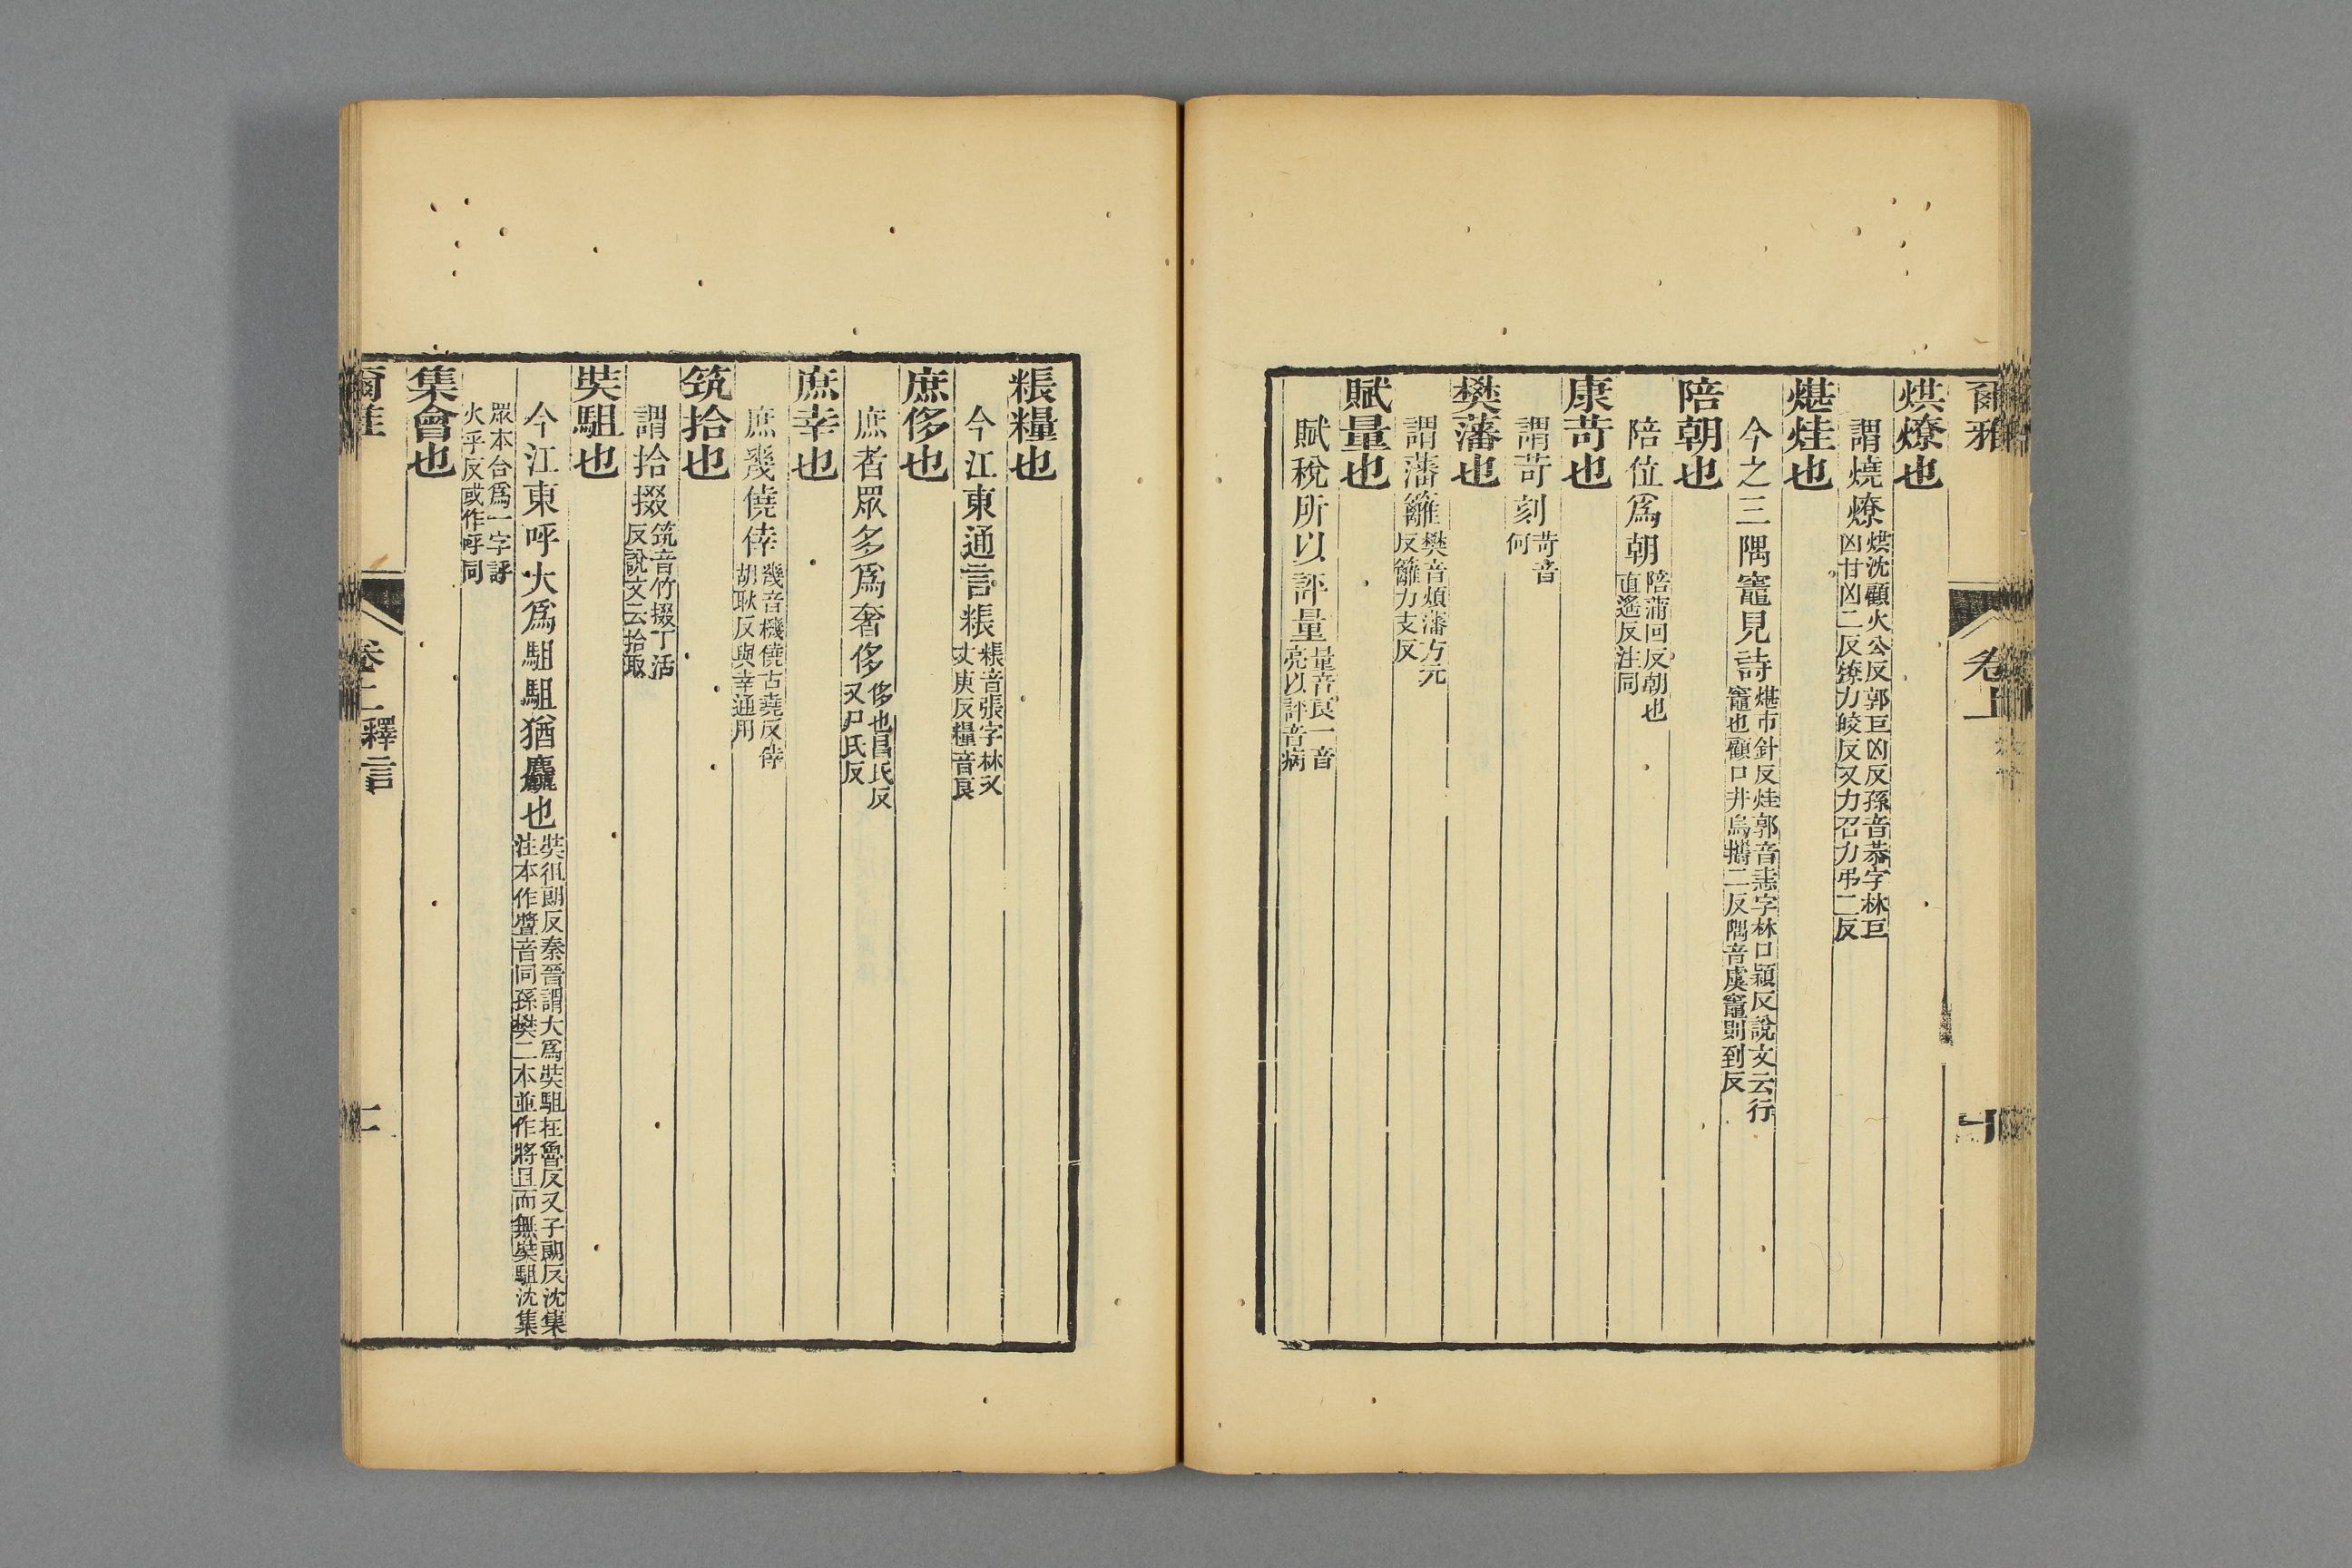 爾雅 卷上
烘燎也
謂燒燎烘沈顧火公反郭巨凶反孫音恭字林巨
凶甘凶二反燎力皎反又力召力弔二反
煁烓也
今之三隅竈見詩煁市針反烓郭音恚字林口潁反說文云行
竈也顧口井烏攜二反隅音虞竈則到反
陪朝也
陪位爲朝陪蒲回反朝也
直遙反注同
康苛也
謂苛刻苛音
何
樊藩也
謂藩籬樊音煩藩方元
反籬力支反
賦量也
賦稅所以評量量音良一音
亮以評音病
粻糧也
今江東通言粻粻音張字林又
丈庚反糧音良
庶侈也
庶者眾多爲奢侈侈也昌氏反
又尸氏反
庶幸也
庶幾僥倖幾音機僥古堯反倖
胡耿反與幸通用
筑拾也
謂拾掇筑音竹掇丁活
反說文云拾取
奘駔也
今江東呼大爲駔駔猶麤也奘徂朗反秦晉謂大爲奘駔在魯反又子朗反沈集
注本作㢡音同孫樊二本並作將且而無奘駔沈集
眾本合爲一字㝬
火乎反或作呼同
集會也
爾雅 卷上 釋言